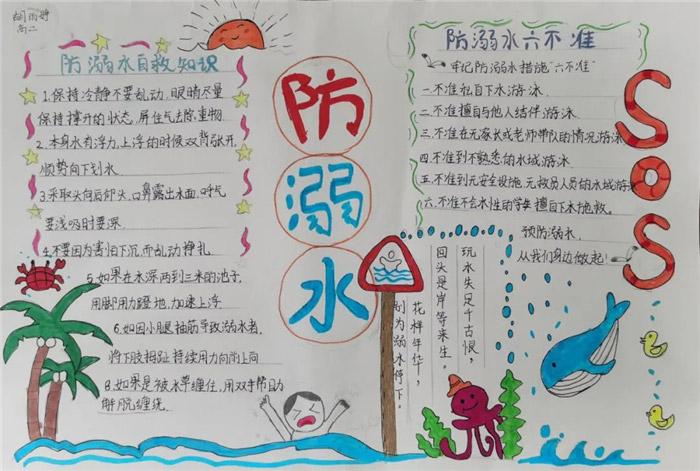 高二
防溺水自救知识
1.保持冷静不要乱动,眼睛尽量
保持撑开的状态,屏住气去除重物.
2.本身水有浮力,上浮的时候双臂张开,
顺势向下划水.
3.采取头向后仰头,口鼻露出水面.呼气
要浅吸时要深.
4.不要因为害怕下沉而乱动挣扎.
5.如果在水深两到三米的池子,
用脚用力蹬地,加速上浮.
6.如因小腿抽筋导致溺水者,
将下肢拇趾持续用力向前上向
8.如果是被水草缠住,用双手帮助
解脱缠绕.
防
溺
水
防溺水六不准
牢记防溺水措施"六不准"
一.不准私自下水游泳.
二.不准擅自与他人结伴游泳.
三.不准在无家长或老师带队的情况游泳
四.不准到不熟悉的水域游泳
五.不准到无安全设施,无救员人员的水域游泳
六.不准不会水性的学生擅自下水施救.
预防溺水,
从我们身边做起!
SOS
玩水失足千古恨,
回头是岸等来生.
花样年华,
别为溺水停下.